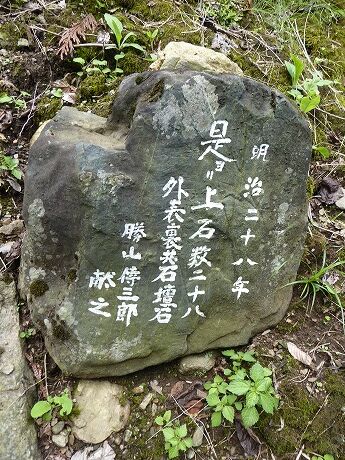 明治二十八年
是ヨリ上石数二十八
外表裏共石壇石
勝山傳三郎
献之